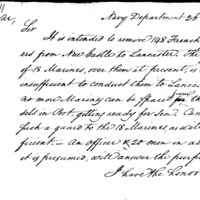 Navy Department 26
Sir
It is intended to remove 148 French
ers from New Castle to Lancaster. The
of 18 Marines, over them at present, is
insufficient to conduct them to Lanca
no more Marines can be spared from th
sels in Port, getting ready for Sea. Can
such a guard to the 18 Marines, as will
ficient. An officer & 20 men in ad
it is presumed, will answer the purp
I have the honor